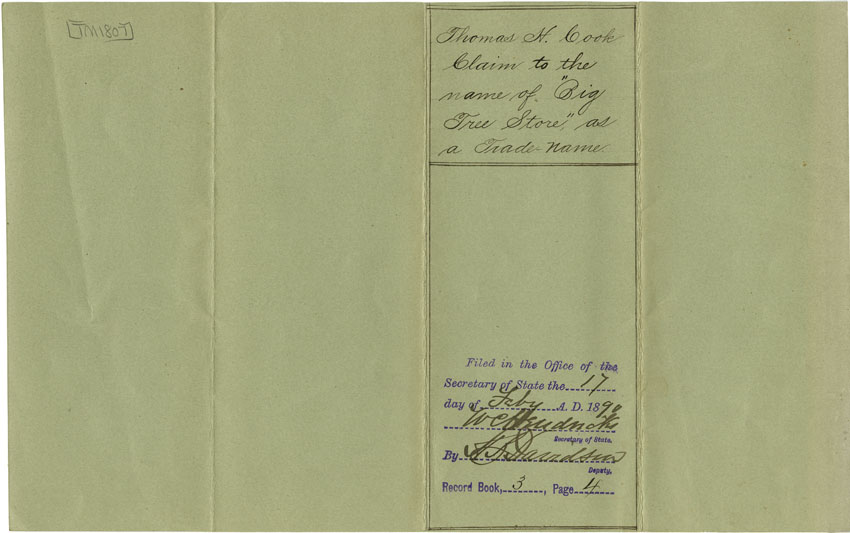 [TM1807]
Thomas H. Cook
Claim to the
name of "Big
Tree Store," as
a Trade-name.
Filed in the Office of the
Secretary of State the 17
day of Feby A. D. 1890
W C Hendricks
Secretary of State.
By Davidson
Deputy.
Record Book, 3, Page 4